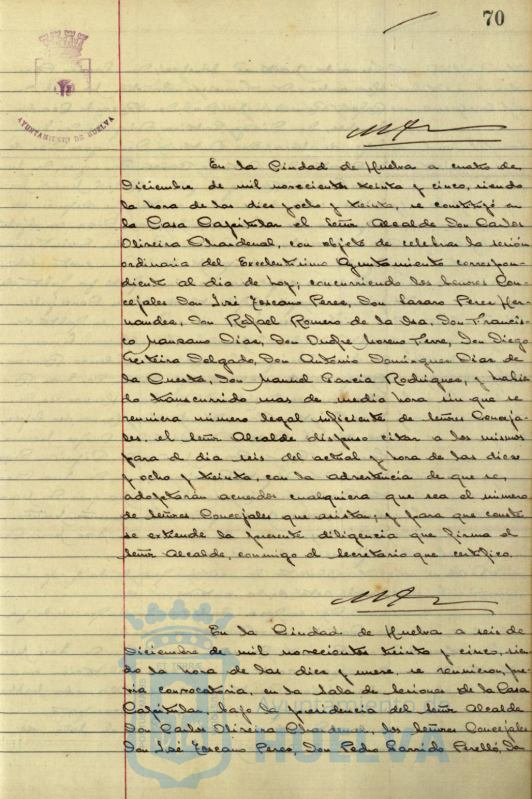 70
AYUNTAMIENTO DE HUELVA
En la Ciudad de Huelva a cuatro de
Diciembre de mil novecientos treinta y cinco, siendo
la hora de las diez y ocho y treinta, se constituyó en
la Casa Capitular el Señor Alcalde Don Carlos
Oliveira Chardenal, con objeto de celebrar la sesión
ordinaria del Excelentísimo Ayuntamiento correspon-
diente al día de hoy; concurriendo los Señores Con-
cejales Don José Toscano Perez, Don Lázaro Perez Her-
nandez, Don Rafael Romero de la Osa, Don Francis-
co Manzano Diaz, Don Onofre Moreno Ferre, Don Diego
Testeira Delgado, Don Antonio Dominguez Diaz de
la Cuesta, Don Manuel Garcia Rodriguez, y habien
do transcurrido mas de media hora sin que se
reuniera número legal suficiente de Señores Conceja-
les, el Señor Alcalde dispuso citar a los mismos
para el día seis del actual y hora de las diez
y ocho y treinta, con la advertencia de que se
adoptarán acuerdos cualquiera que sea el número
de Señores Concejales que asistan; y para que conste
se extiende la presente diligencia que firma el
Señor Alcalde, conmigo el Secretario que certifico.
En la Ciudad de Huelva a seis de
Diciembre de mil novecientos treinta y cinco, sien-
do la hora de las diez y nueve se reunieron, pre-
via convocatoria, en la Sala de Sesiones de la Casa
Capitular bajo la presidencia del Señor Alcalde
Don Carlos Oliveira Chardenal, los Señores Concejales
Don José Toscano Perez, Don Pedro Garrido Perelló, Do
Ayuntamiento de
HUELVA